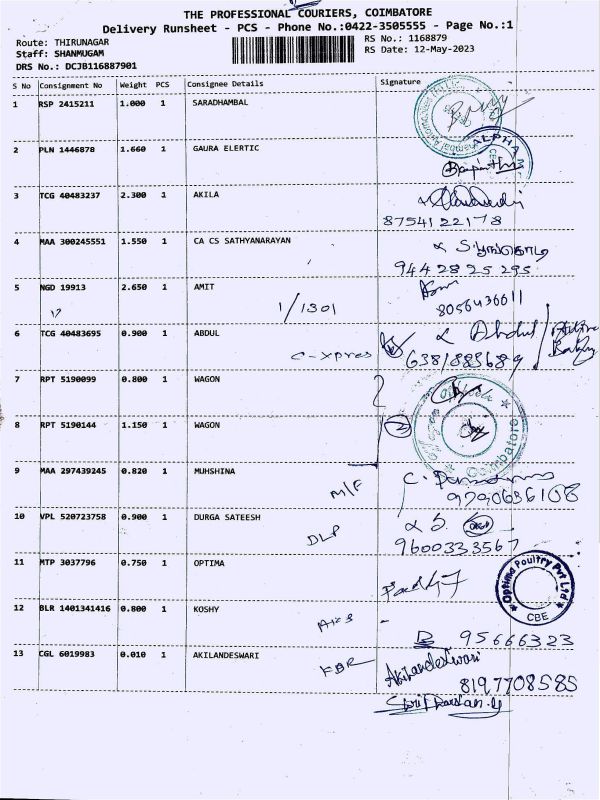 THE PROFESSIONAL COURIERS, COIMBATORE
Delivery Runsheet - PCS - Phone No.:0422-3505555 - Page No.:1
Route: THIRUNAGAR
RS No.: 1168879
Staff: SHANMUGAM
RS Date: 12-May-2023
DRS No.: DCJB116887901
S No Consignment No Weight PCS Consignee Details Signature
1 RSP 2415211 1.000 1 SARADHAMBAL
2 PLN 1446878 1.660 1 GAURA ELERTIC
ALPHA
3 TCG 40483237 2.300 1 AKILA
8754122178
4 MAA 300245551 1.550 1 CA CS SATHYANARAYAN
9442825295
5 NGD 19913 2.650 1 AMIT
1/1301
8056436611
6 TCG 40483695 0.900 1 ABDUL
C-xpres
Abdul
6381885689
7 RPT 5190099 0.800 1 WAGON
8 RPT 5190144 1.150 1 WAGON
2
Coimbatore
9 MAA 297439245 0.820 1 MUHSHINA
M/F
9790636108
10 VPL 520723758 0.900 1 DURGA SATEESH
DLP
9600333567
11 MTP 3037796 0.750 1 OPTIMA
Optima Poultry Pvt Ltd
CBE
12 BLR 1401341416 0.800 1 KOSHY
95666323
13 CGL 6019983 0.010 1 AKILANDESWARI
Akilandeswari
8197708585